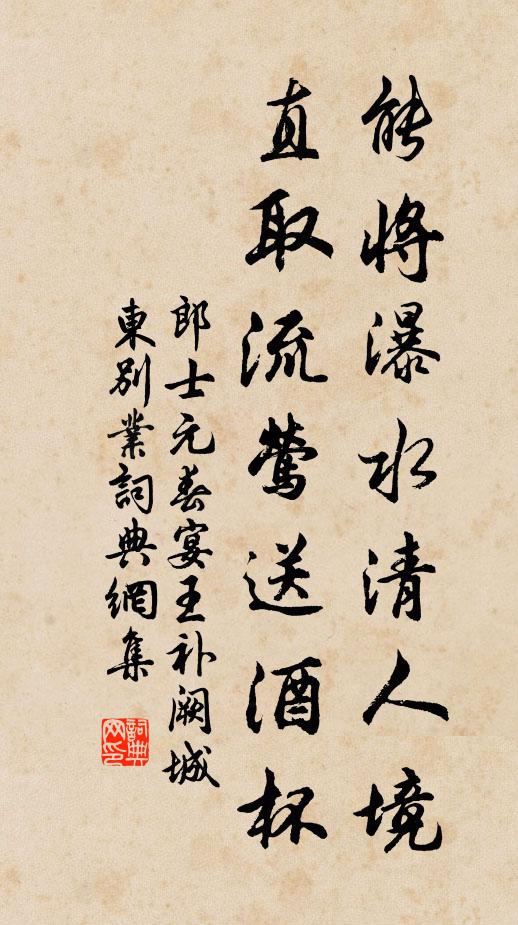 能將瀑水清人境
直取流鶯送酒杯
郎士元春宴王补闕城
東別業詞典網集
詞典网印